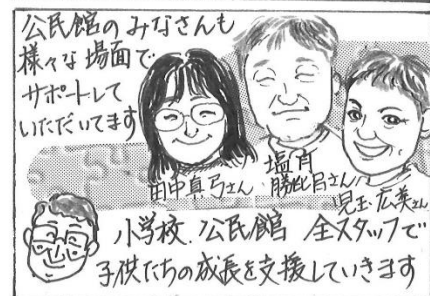 公民館のみなさんも
様々な場面で
サポートして
いただいてます
田中真弓さん
塩月
勝比呂さん
児玉広美さん
小学校、公民館 全スタッフで
子供たちの成長を支援していきます